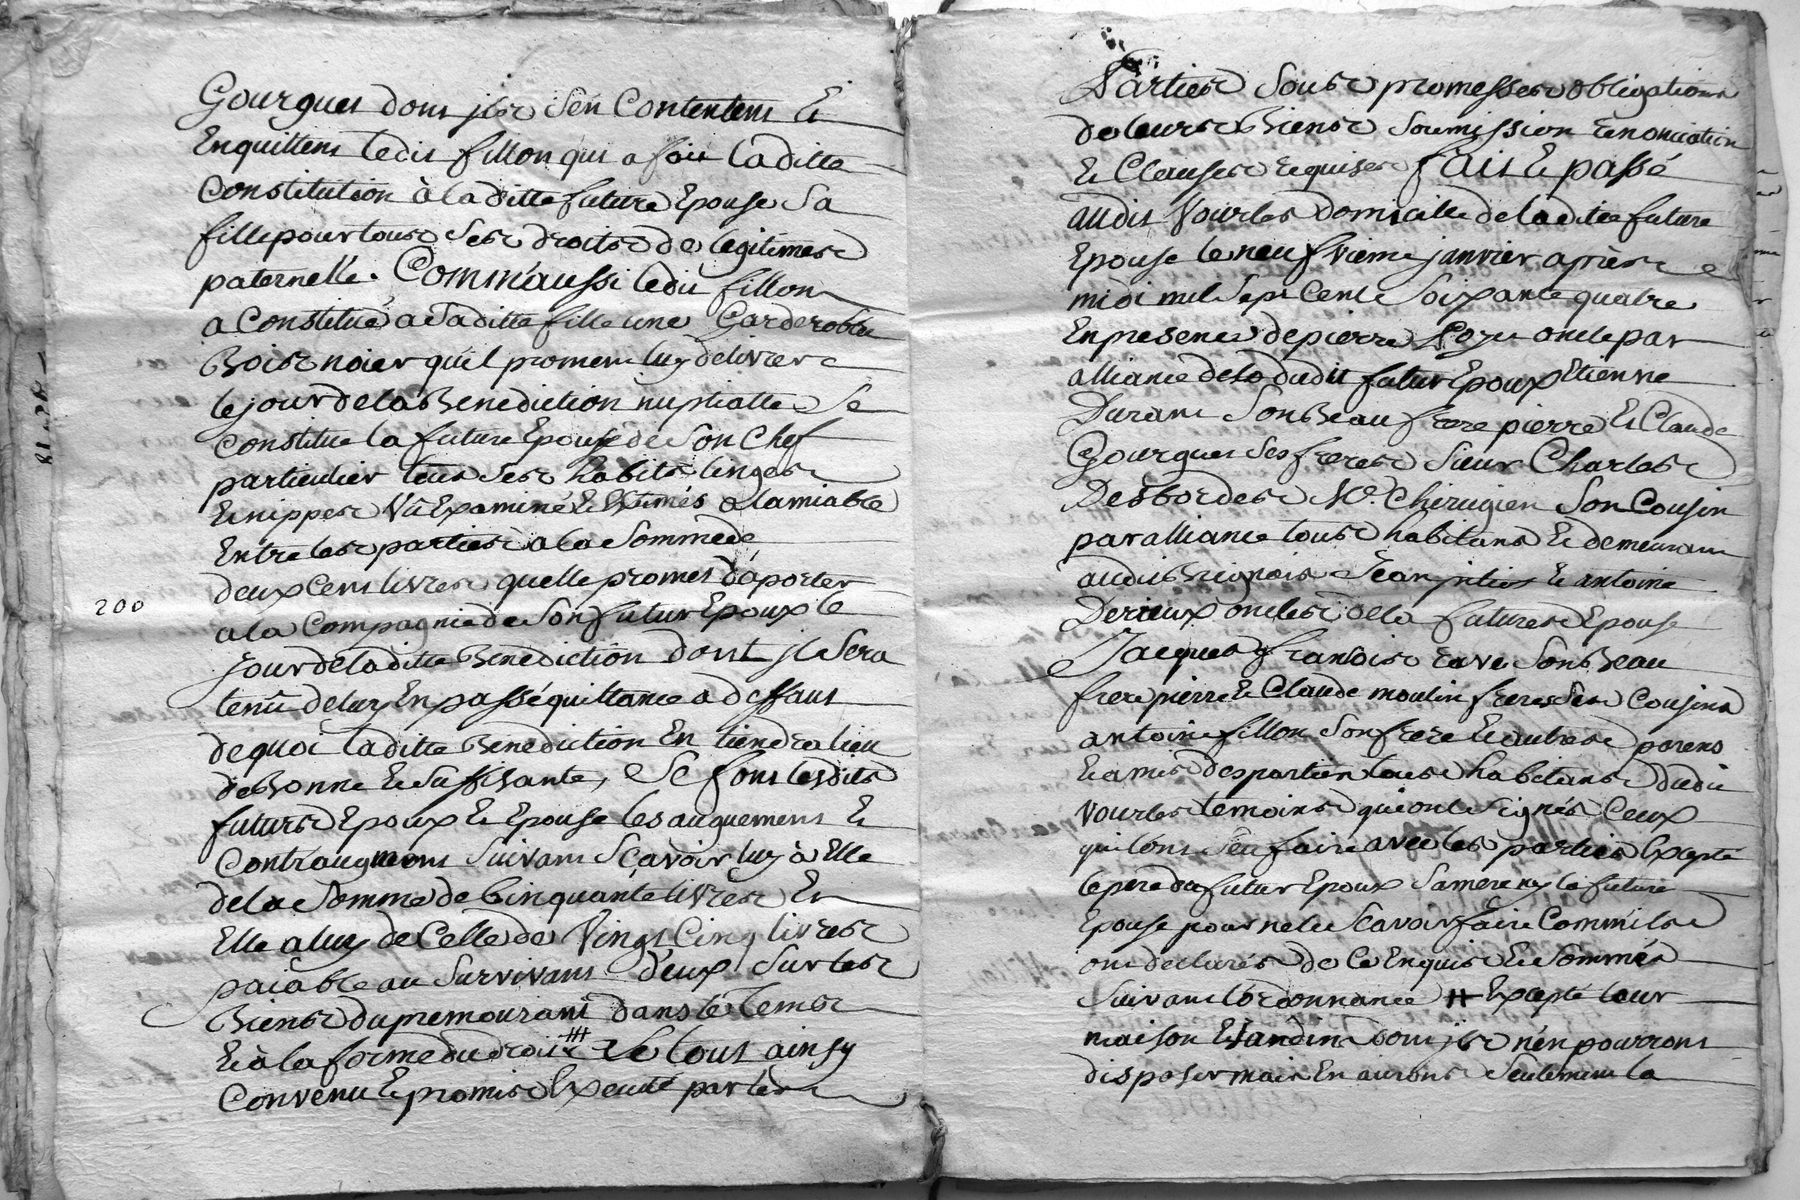 Gourgues dont jls s'en Contentent Et
Enquittent ledit fillon qui a fait laditte
Constitution à laditte future Epouse Sa
fille pour tous Ses droits de legitimes
paternelle. Comm'aussi ledit fillon
a Constitué a Saditte fille une Garderobbe
Bois noier qu'il promet luy delivrer
le jour de la Benediction nuptialle Se
Constitue la future Epouse de Son Chef
particulier tous Ses habits linges
Et nippes Vû Examiné Et Estimés a lamiable
Entre les parties a la Somme de
deux Cent livres quelle promet d'aporter
200
a la Compagnie de Son futur Epoux le
jour de laditte Benediction dont jl Sera
tenû de luy En passé quittance a deffaut
de quoi laditte Benediction En tiendra lieu
de Bonne Et Suffisante, Se font lesdits
futurs Epoux Et Epouse les augument Et
Contraugment Suivant Scavoir luy à Elle
de la Somme de Cinquante livres Et
Elle a luy de Celle de Vingt Cinq livres
paiable au Survivant d'eux Sur les
Biens du premourant dans le tems
Et à la forme du droit # Le tout ainsy
Convenu Et promis Executé par les
Parties Sous promesses obligations
de leurs Biens Soumission renonciation
Et Clauses requises fait Et passé
audit Vourles domicille de laditte future
Epouse le neufvieme janvier après
midi mil Sept Cent Soixante quatre
En presence de pierre oncle par
alliance de dudit futur Epoux Etienne
Durant Son Beau frere pierre Et Claude
Gourgues Ses freres Sieur Charles
Desbordes Me. Chirugien Son Cousin
par alliance tous habitans Et demeurant
audit Brignais Jean Et antoine
Derieux oncles de la future Epouse
Jacques françois rave Son Beau
frere pierre Et Claude moulin freres Ses Cousins
antoine fillon Son frere Et autres parens
Et amis des parties tous habitans dudit
Vourles temoins qui ont Signés Ceux
qui l'ont Sçeu faire avec les parties Excepté
le pere du futur Epoux Sa mere ny la future
Epouse pour ne le Scavoir faire Comm'ils
ont declarés de Ce Enquis Et Sommés
Suivant l'ordonnance # Excepté leur
maison Et Jardin dont jls n'en pourront
disposer mais En auront Seulement la